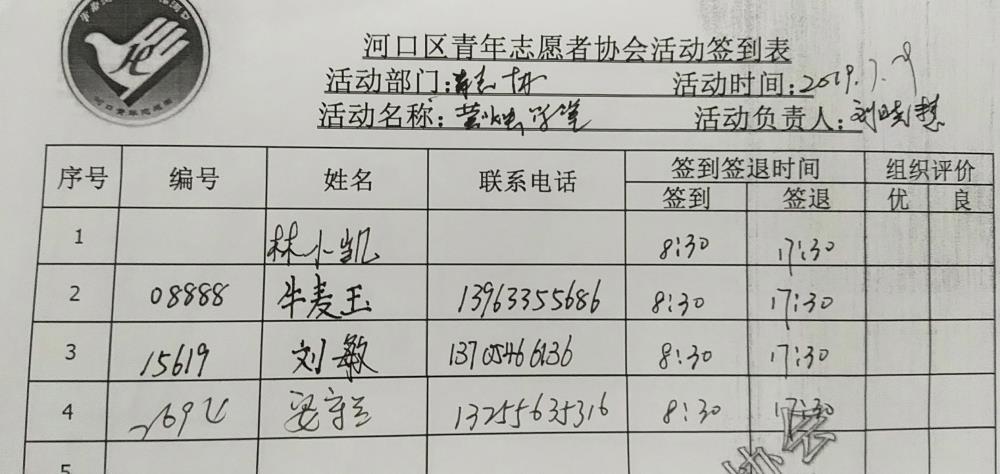 河口区青年志愿者协会活动签到表
活动部门:青志协 活动时间:2019.7.9
活动名称: 活动负责人:刘晓慧
序号 编号 姓名 联系电话 签到签退时间 组织评价
签到 签退 优 良
1 林小凯 8:30 17:30
2 08888 牛麦玉 13963355686 8:30 17:30
3 15619 刘敏 13705466136 8:30 17:30
4 13255635316 8:30 17:30
5